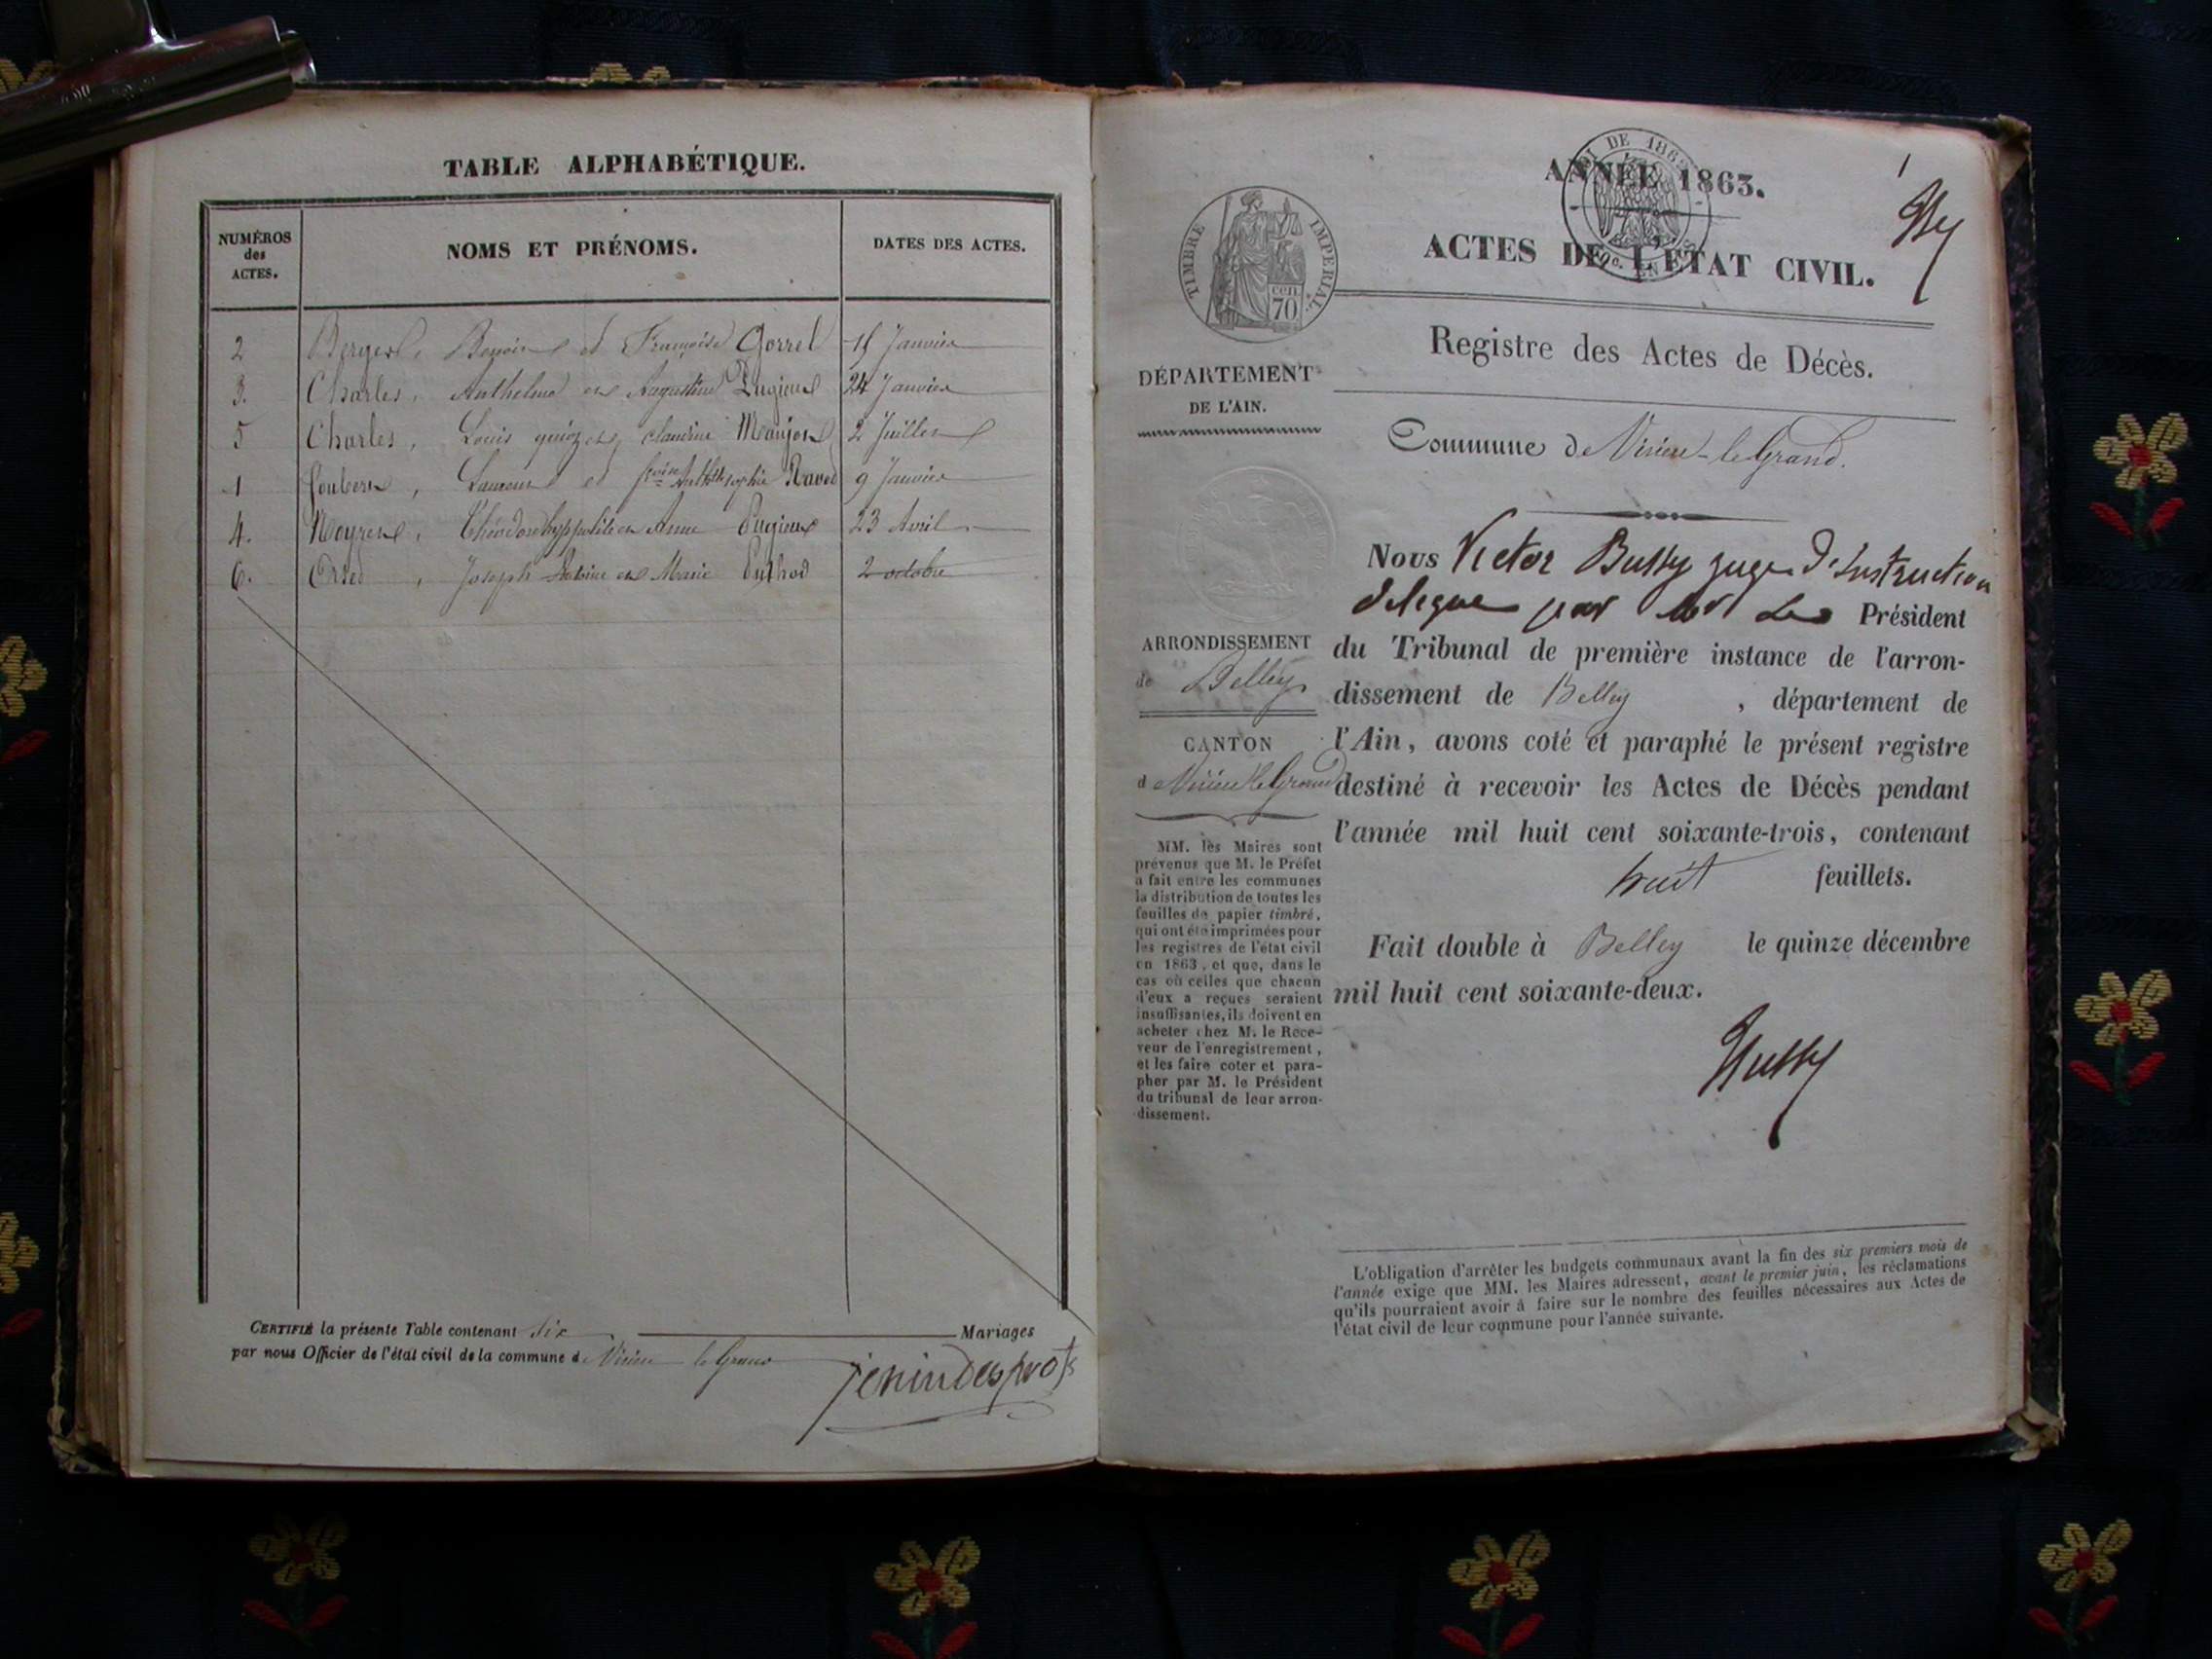 TABLE ALPHABÉTIQUE.
NUMÉROS
des
ACTES.
NOMS ET PRÉNOMS.
DATES DES ACTES.
2 Benoit et Françoise Gorrel 15 Janvier
3. Charles, Anthelme et Augustine Pugieux 24 Janvier
5 Charles, Louis et Claudine Maujon 2 Juillet
1 Laurent et Sophie Ravod 9 Janvier
4. Meyrend, Théodore hyppolite et Anne Pugieux 23 Avril
6. Joseph Antoine et Marie Puthod 2 octobre
CERTIFIÉ la présente Table contenant six Mariages
par nous Officier de l'état civil de la commune de Virieu le Grand
jenindesprots
1
LOI DE 1862
ANNÉE 1863.
ACTES DE L'ÉTAT CIVIL.
TIMBRE IMPERIAL.
cen.
70
Registre des Actes de Décès.
DÉPARTEMENT
DE L'AIN.
Commune de Virieu-le-Grand.
Nous Victor Bussy juge d'Instruction
délégué par Mr Le Président
du Tribunal de première instance de l'arron-
dissement de Belley, département de
l'Ain, avons coté et paraphé le présent registre
destiné à recevoir les Actes de Décès pendant
l'année mil huit cent soixante-trois, contenant
huit feuillets.
Fait double à Belley le quinze décembre
mil huit cent soixante-deux.
Bussy
ARRONDISSEMENT
de Belley
CANTON
de Virieu le Grand
MM. les Maires sont
prévenus que M. le Préfet
a fait entre les communes
la distribution de toutes les
feuilles de papier timbré,
qui ont été imprimées pour
les registres de l'état civil
en 1863, et que, dans le
cas où celles que chacun
d'eux a reçues seraient
insuffisantes, ils doivent en
acheter chez M. le Rece-
veur de l'enregistrement,
et les faire coter et para-
pher par M. le Président
du tribunal de leur arron-
dissement.
L'obligation d'arrêter les budgets communaux avant la fin des six premiers mois de
l'année exige que MM. les Maires adressent, avant le premier juin, les réclamations
qu'ils pourraient avoir à faire sur le nombre des feuilles nécessaires aux Actes de
l'état civil de leur commune pour l'année suivante.